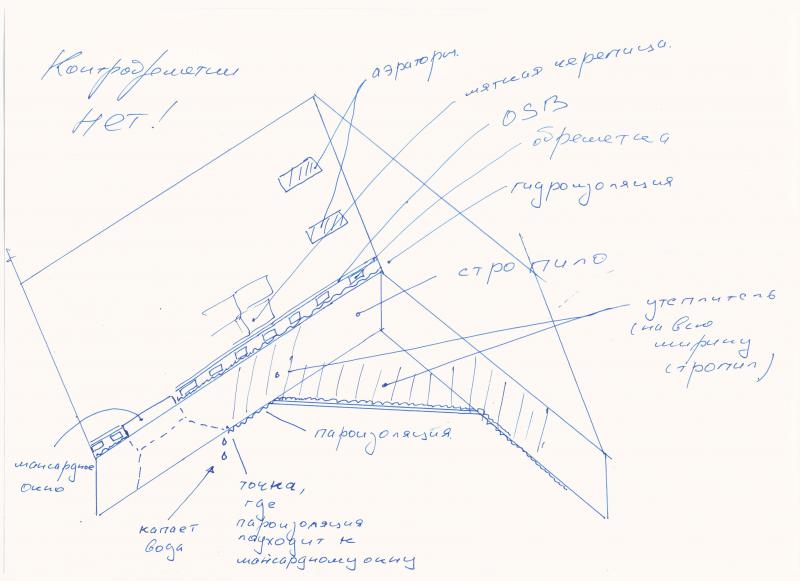 Контробрешетки
нет!
аэраторы.
мягкая черепица.
OSB
обрешетка
гидроизоляция
стропило
утеплитель
(на всю
ширину
стропил)
пароизоляция
мансардное
окно
капает
вода
точка,
где
пароизоляция
подходит к
мансардному окну